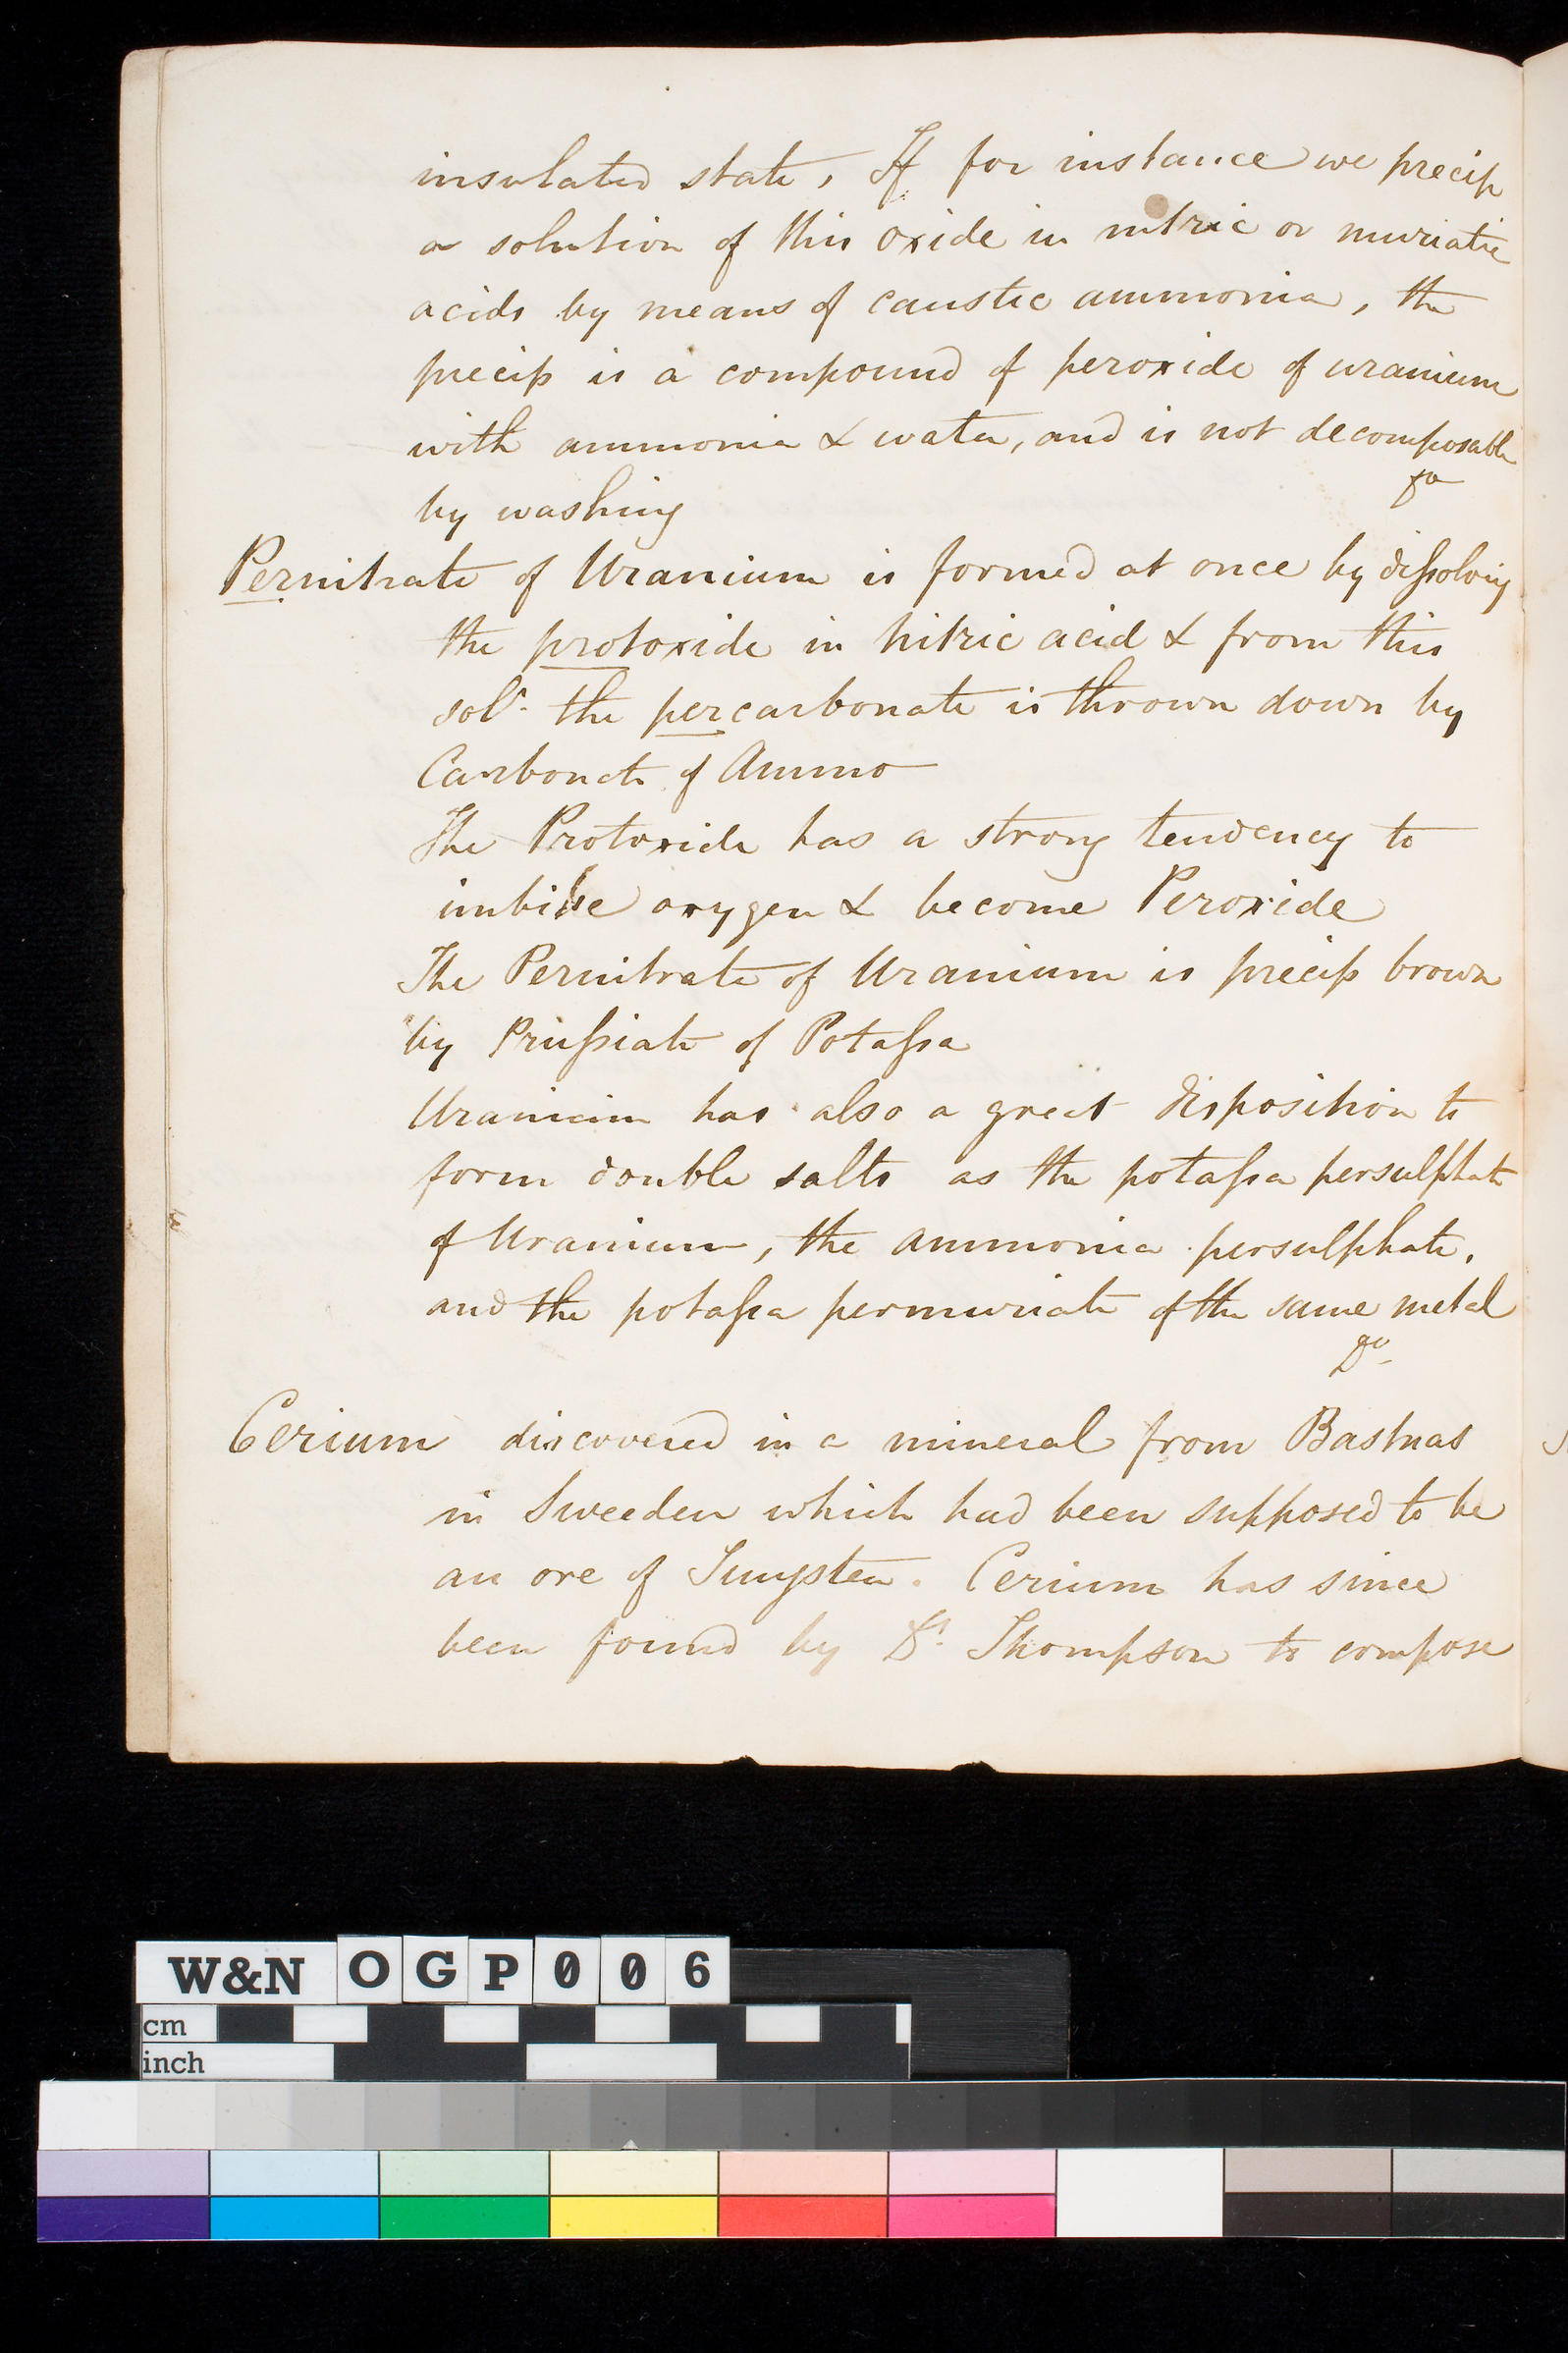 insulated state, If for instance we precip
a solution of this oxide in nitric or muriatic
acids by means of caustic ammonia, the
precip is a compound of peroxide of uranium
with ammonia & water, and is not decomposable
by washing
Pernitrate of Uranium is formed at once by dissolving
the protoxide in nitric acid & from this
soln. the percarbonate is thrown down by
Carbonate of Ammo
The Protoxide has a strong tendency to
imbibe oxygen & become Peroxide
The Pernitrate of Uranium is precip brown
by Prussiate of Potassa
Uranium has also a great disposition to
form double salts as the potassa persulphate
of Uranium, the ammonia persulphate,
and the potassa permuriate of the same metal
Do
Cerium discovered in a mineral from Bastnas
in Sweeden which had been supposed to be
an ore of Tungsten. Cerium has since
been found by Dr. Thompson to compose
W&N OGP006
cm
inch